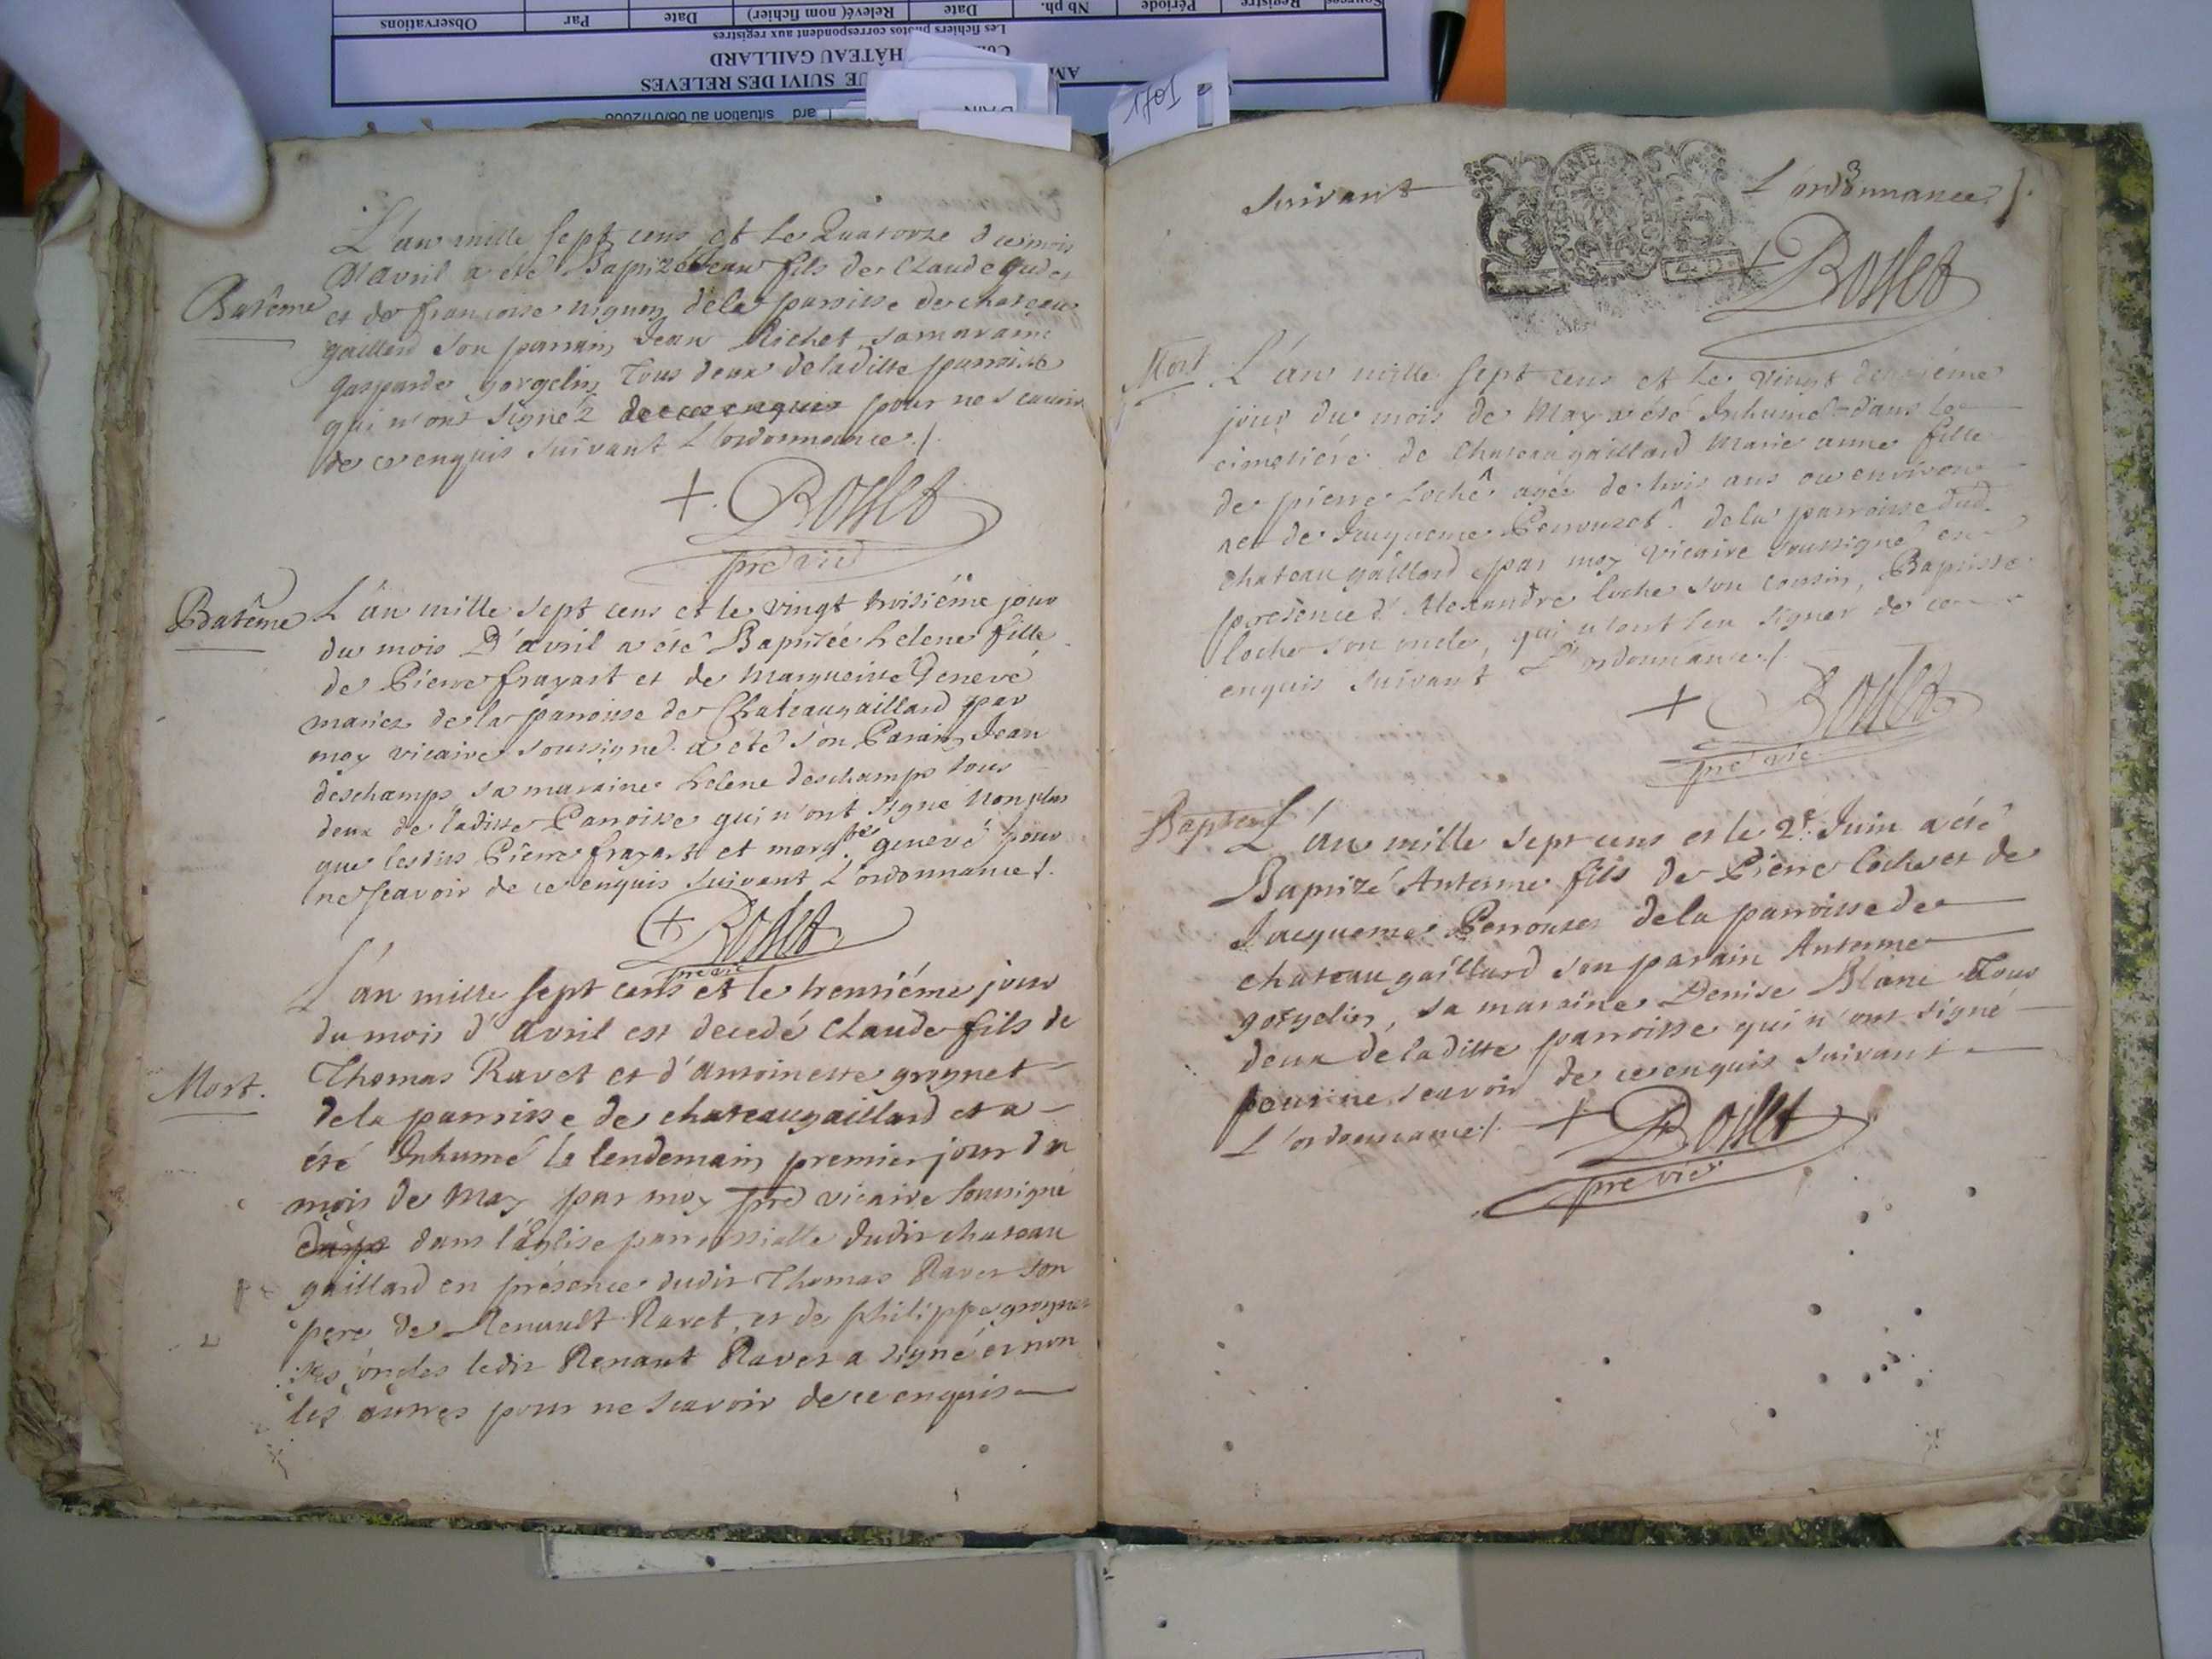 Sources Registre Période Nb ph. Date Relevé( nom fichier) Date Par Observations
Les fichiers photos correspondent aux registres
CHÂTEAU GAILLARD
UE SUIVI DES RELEVES
situation au
1701
L'an mille sept cens et le Quatorze du mois
D'avril a été Baptizé Jean fils de Claude
Batême
et de francoise de la parroisse de chateau
gaillard son parrain Jean Richet, sa maraine
gasparde gorgelin tous deux de laditte parroisse
qui n'ont signéz de ce enquis pour ne scavoir
de ce enquis suivant L'ordonnance ./.
+. Rosset
pre vic
Batême
L'an mille sept cens et le vingt troisiéme jour
du mois D'avril a été Baptisée helene fille
de Pierre frayart et de Margueritte Genevé
mariez de la parroisse de Chateaugaillard par
moy vicaire soussigné a eté son Parain Jean
deschamps sa maraine helene deschamps tous
deux de laditte Parroisse qui n'ont signe non plus
que lesdits Pierre frayart et marg.te genevé pour
ne scavoir de ce enquis suivant L'ordonnance /.
+ Rosset
pre vic
L'an mille sept cens et le trentiéme jour
du mois d'avril est decedé Claude fils de
Mort.
Thomas Ravet et d'antoinette grognet
de la parroisse de chateaugaillard et a
été Inhumé le lendemain premier jour du
mois de May par moy pre vicaire soussigné
dans l'église parroissialle dudit chateau
gaillard en présence dudit Thomas Ravet son
pere de Renault Ravet, et de philippe grognet
ses oncles ledit Renaut Ravet a signé et non
les autres pour ne scavoir de ce enquis
suivant L'ordonnance /.
+ Rosset
Mort
L'an mille sept cens et le vingt deuxiéme
jour du mois de May a été Inhumé dans le
cimetiére de Chateaugaillard Marie anne fille
de pierre Loche agée de trois ans ou environ
et de Jacqueme Perrouzet de la parroisse dud.
chateaugaillard par moy vicaire soussigné en
presence d'Alexandre loche son cousin, Baptiste
loche son oncle, qui n'ont sçu signer de ce
enquis suivant L'ordonnance /.
+ Rosset
pre vic
Baptem
L'an mille sept cens et le 2e. Juin a été
Baptizé Anterme fils de Pierre loche et de
Jacqueme Perrouzet de la parroisse de
chateaugaillard son parain Anterme
gorgelin, sa maraine Denise Blanc Tous
deux de laditte parroisse qui n'ont signé
pour ne scavoir de ce enquis suivant
L'ordonnance /. + Rosset
pre vic